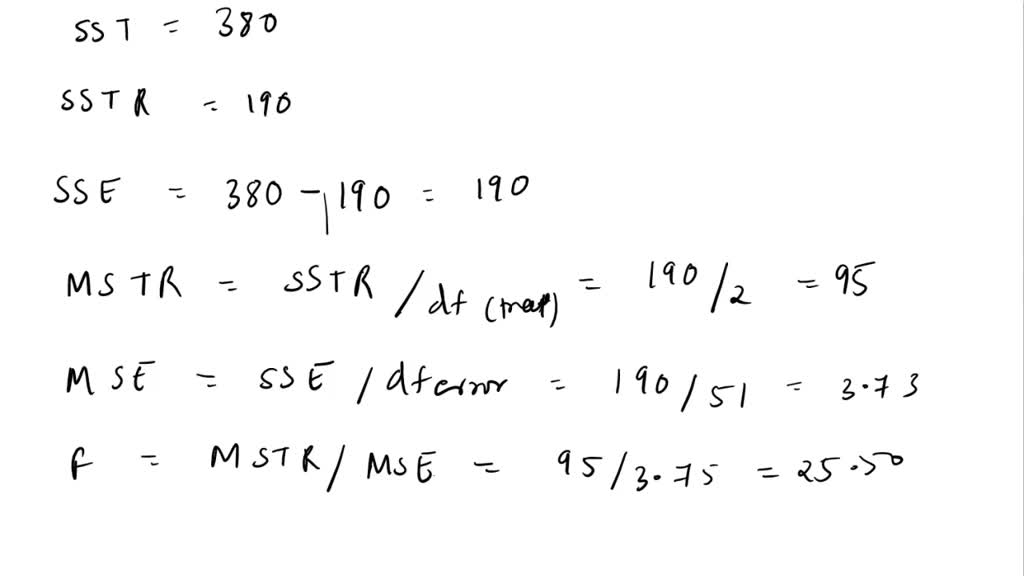 SST = 380
SSTR = 190
SSE = 380 - 190 = 190
MSTR = SSTR / df (treat) = 190 / 2 = 95
MSE = SSE / df error = 190 / 51 = 3.73
F = MSTR / MSE = 95 / 3.75 = 25.50